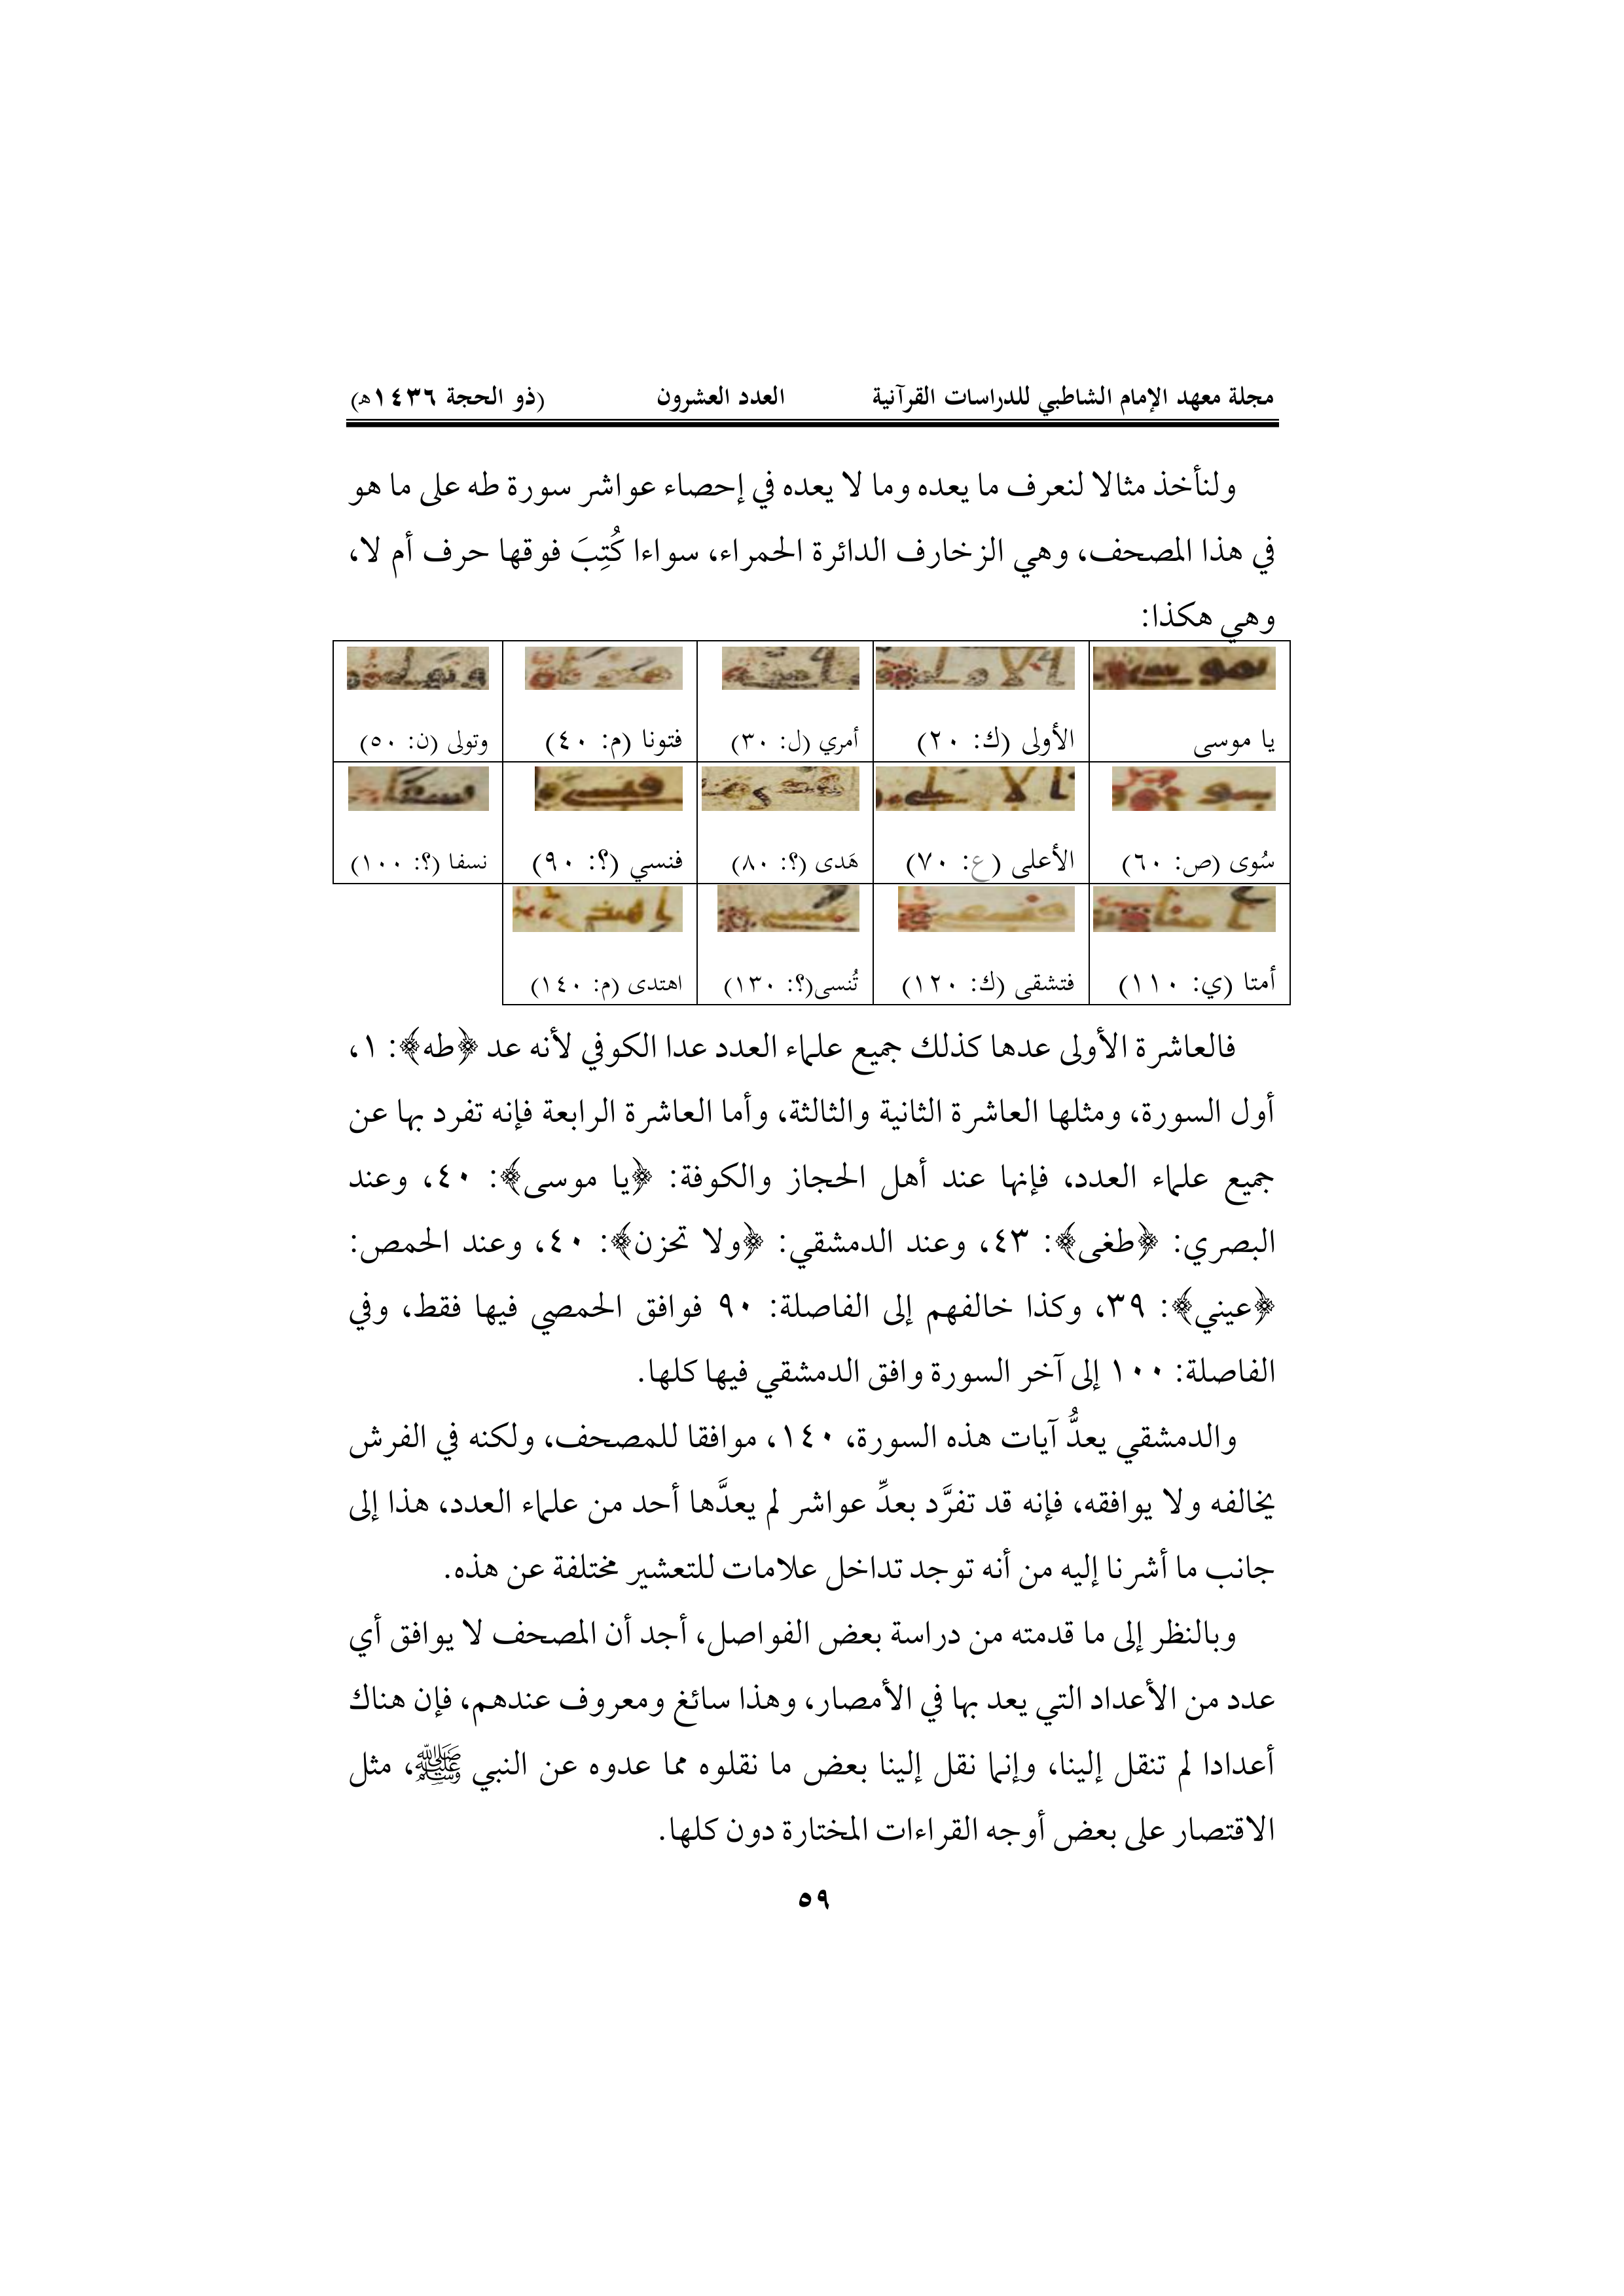 مجلة معهد الإمام الشاطبي للدراسات القرآنية العدد العشرون (ذو الحجة ١٤٣٦هـ)
ولنأخذ مثالا لنعرف ما يعده وما لا يعده في إحصاء عواشر سورة طه على ما هو
في هذا المصحف، وهي الزخارف الدائرة الحمراء، سواءا كُتِبَ فوقها حرف أم لا،
وهي هكذا:
يا موسى الأولى (ك: ٢٠) أمري (ل: ٣٠) فتونا (م: ٤٠) وتولى (ن: ٥٠)
سُوى (ص: ٦٠) الأعلى (ع: ٧٠) هَدى (؟: ٨٠) فنسي (؟: ٩٠) نسفا (؟: ١٠٠)
أمتا (ي: ١١٠) فتشقى (ك: ١٢٠) تُنسى(؟: ١٣٠) اهتدى (م: ١٤٠)
فالعاشرة الأولى عدها كذلك جميع علماء العدد عدا الكوفي لأنه عد ﴿طه﴾: ١،
أول السورة، ومثلها العاشرة الثانية والثالثة، وأما العاشرة الرابعة فإنه تفرد بها عن
جميع علماء العدد، فإنها عند أهل الحجاز والكوفة: ﴿يا موسى﴾: ٤٠، وعند
البصري: ﴿طغى﴾: ٤٣، وعند الدمشقي: ﴿ولا تحزن﴾: ٤٠، وعند الحمص:
﴿عيني﴾: ٣٩، وكذا خالفهم إلى الفاصلة: ٩٠ فوافق الحمصي فيها فقط، وفي
الفاصلة: ١٠٠ إلى آخر السورة وافق الدمشقي فيها كلها.
والدمشقي يعدُّ آيات هذه السورة، ١٤٠، موافقا للمصحف، ولكنه في الفرش
يخالفه ولا يوافقه، فإنه قد تفرَّد بعدِّ عواشر لم يعدَّها أحد من علماء العدد، هذا إلى
جانب ما أشرنا إليه من أنه توجد تداخل علامات للتعشير مختلفة عن هذه.
وبالنظر إلى ما قدمته من دراسة بعض الفواصل، أجد أن المصحف لا يوافق أي
عدد من الأعداد التي يعد بها في الأمصار، وهذا سائغ ومعروف عندهم، فإن هناك
أعدادا لم تنقل إلينا، وإنما نقل إلينا بعض ما نقلوه مما عدوه عن النبي ﷺ، مثل
الاقتصار على بعض أوجه القراءات المختارة دون كلها.
٥٩